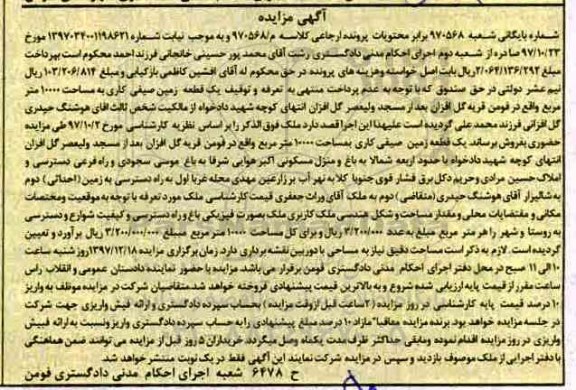 آگهی مزایده
شماره بایگانی شعبه ۹۷۰۵۶۸ برابر محتویات پرونده ارجاعی کلاسه م/۹۷۰۵۶۸ و به موجب نیابت شماره ۱۳۹۷۰۳۴۰۰۱۱۹۸۶۲۱ مورخ
۹۷/۱۰/۲۳ صادره از شعبه دوم اجرای احکام مدنی دادگستری رشت آقای محمد پور حسینی خانجانی فرزند احمد محکوم است بپرداخت
مبلغ ۲/۰۶۴/۱۳۶/۲۹۲ ریال بابت اصل خواسته وهزینه های پرونده در حق محکوم له آقای افشین کاظمی بازکیایی و مبلغ ۱۰۳/۲۰۶/۸۱۴ ریال
نیم عشر دولتی در حق صندوق که با توجه به عدم پرداخت منتهی به تعرفه و توقیف یک قطعه زمین صیفی کاری به مساحت ۱۰۰۰۰ متر
مربع واقع در فومن قریه گل افزان بعد از مسجد ولیعصر گل افزان انتهای کوچه شهید دادخواه از مالکیت شخص ثالث اقای هوشنگ حیدری
گل افزانی فرزند محمد علی گردیده است علیهذا این اجرا قصد دارد ملک فوق الذکر را بر اساس نظریه کارشناسی مورخ ۹۷/۱۰/۲ طی مزایده
حضوری بفروش برساند. یک قطعه زمین صیفی کاری بمساحت ۱۰۰۰۰ متر مربع واقع در فومن قریه گل افزان بعد از مسجد ولیعصر گل افزان
انتهای کوچه شهید دادخواه با حدود اربعه شمالا به باغ و منزل مسکونی اکبر هوایی شرقا به باغ موسی سجودی و راه فرعی دسترسی و
املاک حسین مرادی وحریم دکل برق فشار قوی جنوبا کلا به نهر آب بر زارعین مهدی محله غربا اول به راه دسترسی به زمین (احداثی) دوم
به شالیزار آقای هوشنگ حیدری (متقاضی) دوم به ملک آقای وراث جعفری قیمت کارشناسی ملک مورد تعرفه با توجه به موقعیت ومختصات
مکانی و مقتضیات محلی و مقدار مساحت و شکل هندسی ملک کاربری ملک بصورت فیزیکی باغ و راه دسترسی و کیفیت شوارع و دسترسی
به روستا و شهر را هر متر مربع مبلغ به عدد ۳/۲۰۰/۰۰۰ ریال و برای کل مساحت ۱۰۰۰۰ متر مربع مبلغ ۳/۲۰۰/۰۰۰ ریال بر آورد و تعیین
گردیده است. لازم به ذکر است مساحت دقیق نیاز به مساحی با دوربین نقشه برداری دارد. زمان برگزاری مزایده ۱۳۹۷/۱۲/۱۸ روز شنبه ساعت
۱۰ الی ۱۱ صبح در محل دفتر اجرای احکام مدنی دادگستری فومن برقرار می باشد. مزایده با حضور نماینده دادستان عمومی و انقلاب راس
ساعت مقرر از قیمت پایه ارزیابی شده شروع و به بالاترین قیمت پیشنهادی فروخته خواهد شد. متقاضیان شرکت در مزایده موظف به واریز
۱۰ درصد قیمت پایه کارشناسی در روز مزایده (۲ ساعت قبل ازوقت مزایده) بحساب سپرده دادگستری و ارائه فیش واریزی جهت شرکت
در جلسه مزایده خواهد بود. برنده مزایده معاقبا" مازاد ۱۰ درصد مبلغ پیشنهادی را به حساب سپرده دادگستری واریز ونسبت به ارائه فیش
واریزی در روز مزایده اقدام نموده ومابقی حداکثر ظرف مدت یکماه وصل میگردد. خریداران ۵ روز قبل از مزایده می توانند ضمن هماهنگی
با دفتر اجرایی از ملک موصوف بازدید و سپس در مزایده شرکت نمایند این آگهی فقط در یک نوبت منتشر خواهد شد.
ح ۶۴۷۸ شعبه اجرای احکام مدنی دادگستری فومن